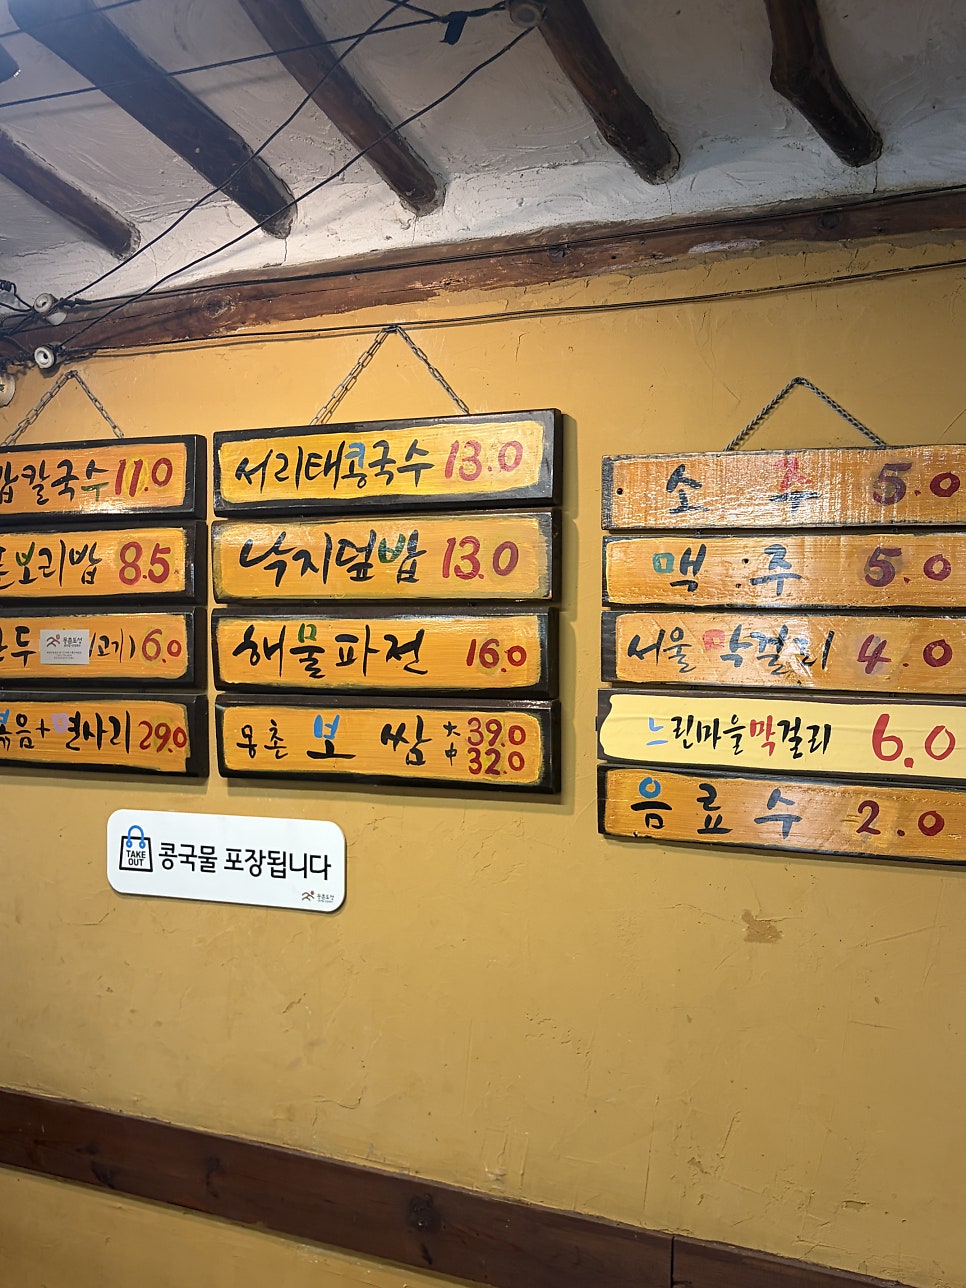 칼국수 11.0
보리밥 8.5
두 고기) 6.0
볶음+면사리 29.0
서리태콩국수 13.0
낙지덮밥 13.0
해물파전 16.0
웅촌 보쌈 大 39.0
中 32.0
소주 5.0
맥주 5.0
서울막걸리 4.0
느린마을막걸리 6.0
음료수 2.0
TAKE
OUT
콩국물 포장됩니다